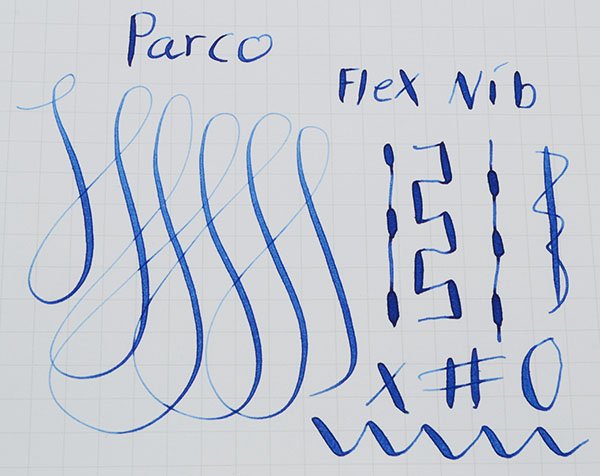 Parco
Flex Nib
x # 0